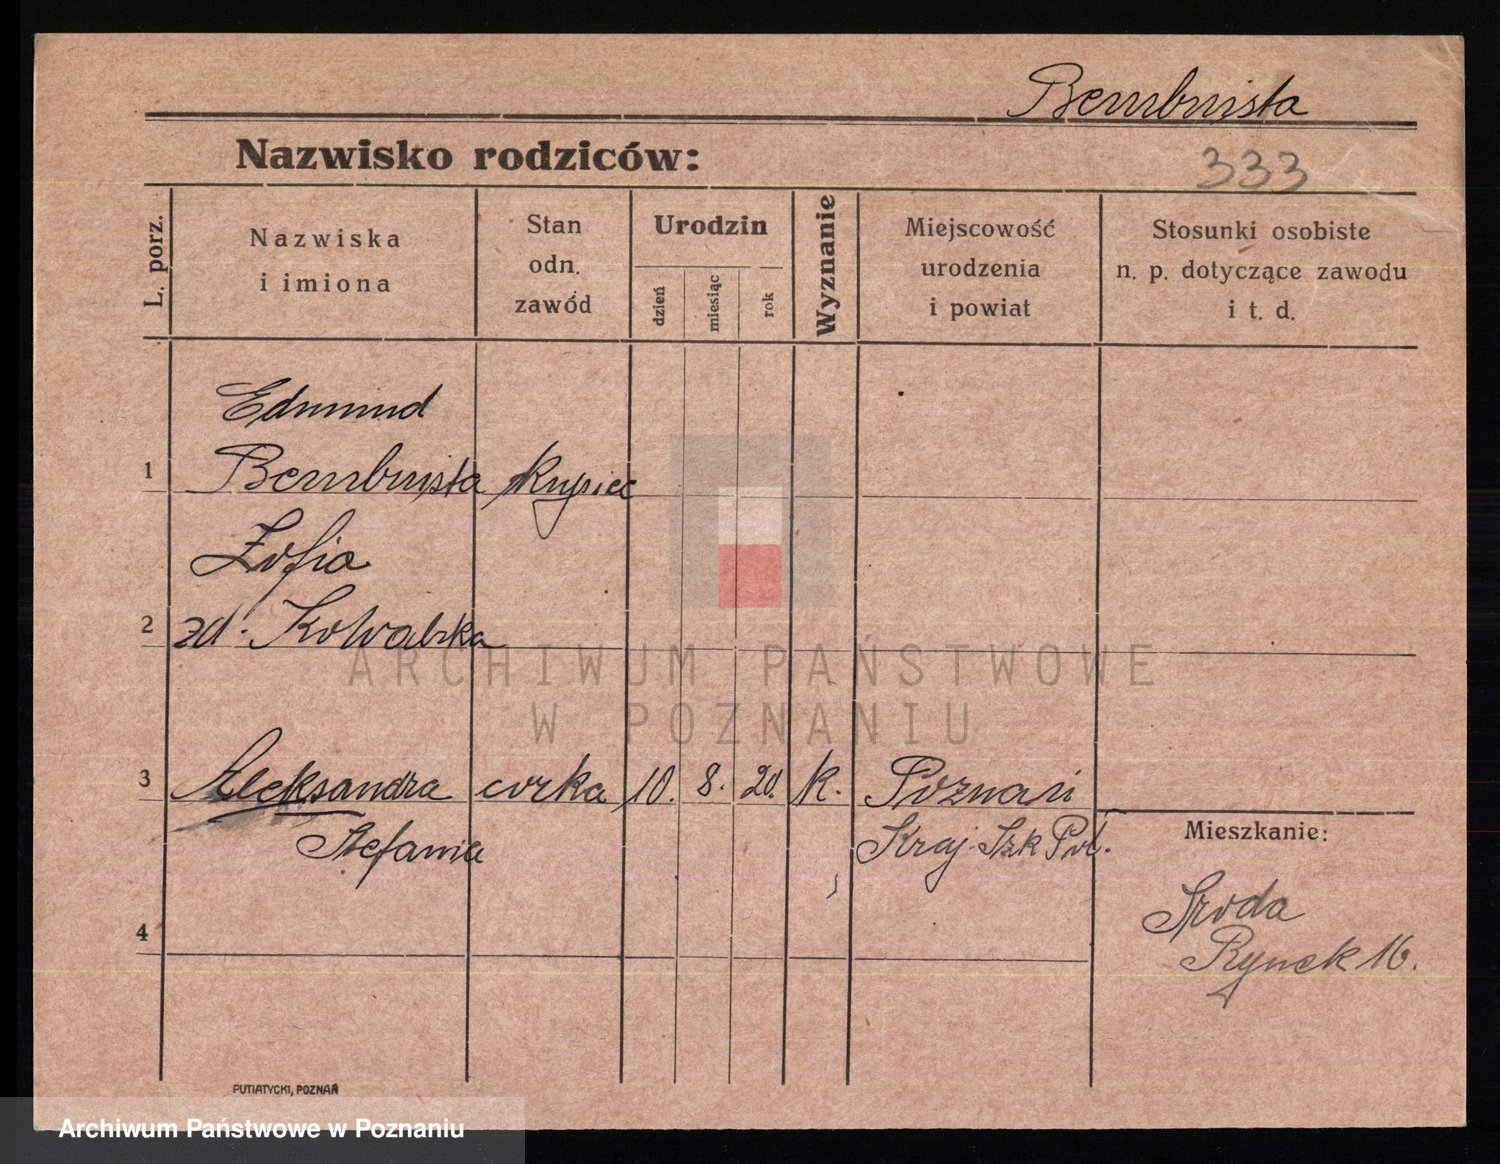 Bembnista
Nazwisko rodziców:
333
L. porz.
Nazwiska
i imiona
Stan
odn.
zawód
Urodzin
dzień
miesiąc
rok
Wyznanie
Miejscowość
urodzenia
i powiat
Stosunki osobiste
n. p. dotyczące zawodu
i t. d.
Edmund
1 Bembnista kupiec
Zofia
2 zd. Kowalska
ARCHIWUM PAŃSTWOWE
W POZNANIU
3 Aleksandra corka 10. 8. 20. k. Poznań
Stefania Kraj. Szk Pol.
Mieszkanie:
4
Sroda
Rynek 16.
PUTIATYCKI, POZNAŃ
Archiwum Państwowe w Poznaniu